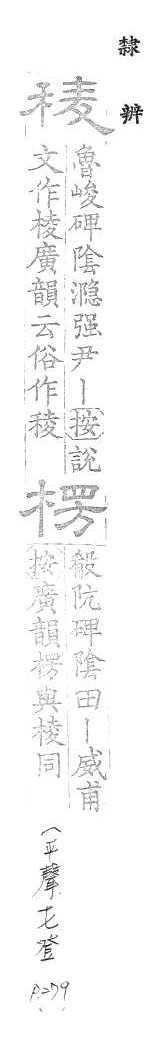 隸辨
稜
魯峻碑陰㶟强尹丨按說
文作棱廣韻云俗作稜
楞
殽阬碑陰田丨威甫
按廣韻楞與棱同
(平聲七登
P.279)